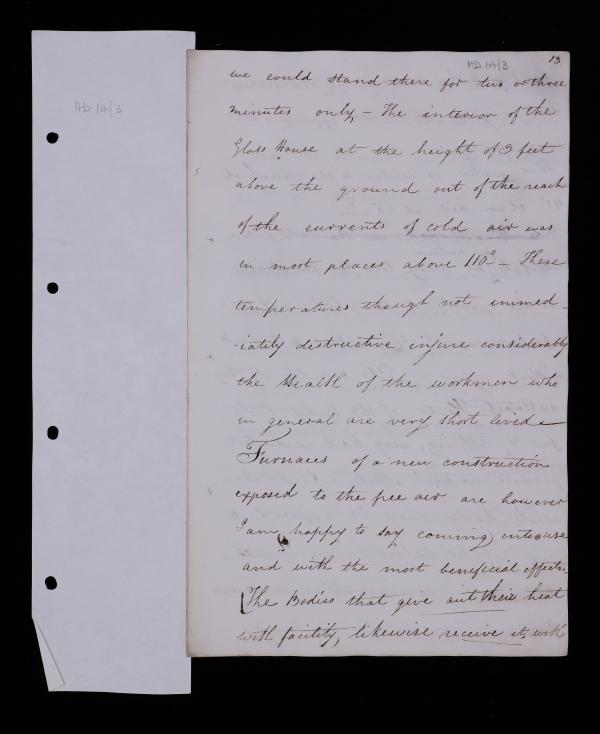 HD 1A/3
HD 1A/3
13
we could stand there for two or three
minutes only – The interior of the
Glass House at the height of 3 feet
above the ground out of the reach
of the currents of cold air was
in most places above 110° – These
temperatures though not immed-
-iately destructive injure considerably
the Health of the workmen who
in general are very short lived –
Furnaces of a new construction
exposed to the free air are however
I am happy to say coming into use
and with the most beneficial effects.
[The Bodies that give out their heat
with facility, likewise receive it, with